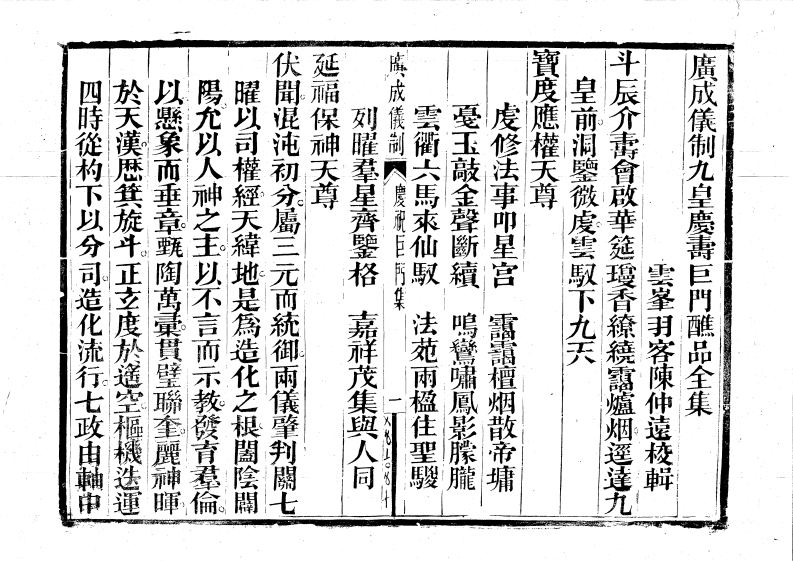 廣成儀制九皇慶壽巨門醮品全集
雲峯羽客陳仲遠校輯
斗辰介壽會啟華筵瓊香繚繞靄爐烟逕達九
皇前洞鑒微虔雲馭下九天
寶度應權天尊
虔修法事叩星宮　靄靄檀烟散帝墉
戞玉敲金聲斷續　鳴鸞嘯鳳影朦朧
雲衢六馬來仙馭　法苑兩楹住聖騣
廣成儀制　慶祝巨門集　一
列曜羣星齊鑒格　嘉祥茂集與人同
延福保神天尊
伏聞混沌初分屬三元而統御兩儀肇判闢七
曜以司權經天緯地是爲造化之根闔陰闢
陽允以人神之主以不言而示教發育羣倫
以懸象而垂章甄陶萬彙貫璧聯奎麗神暉
於天漢歷箕旋斗正玄度於遙空樞機迭運
四時從杓下以分司造化流行七政由軸中